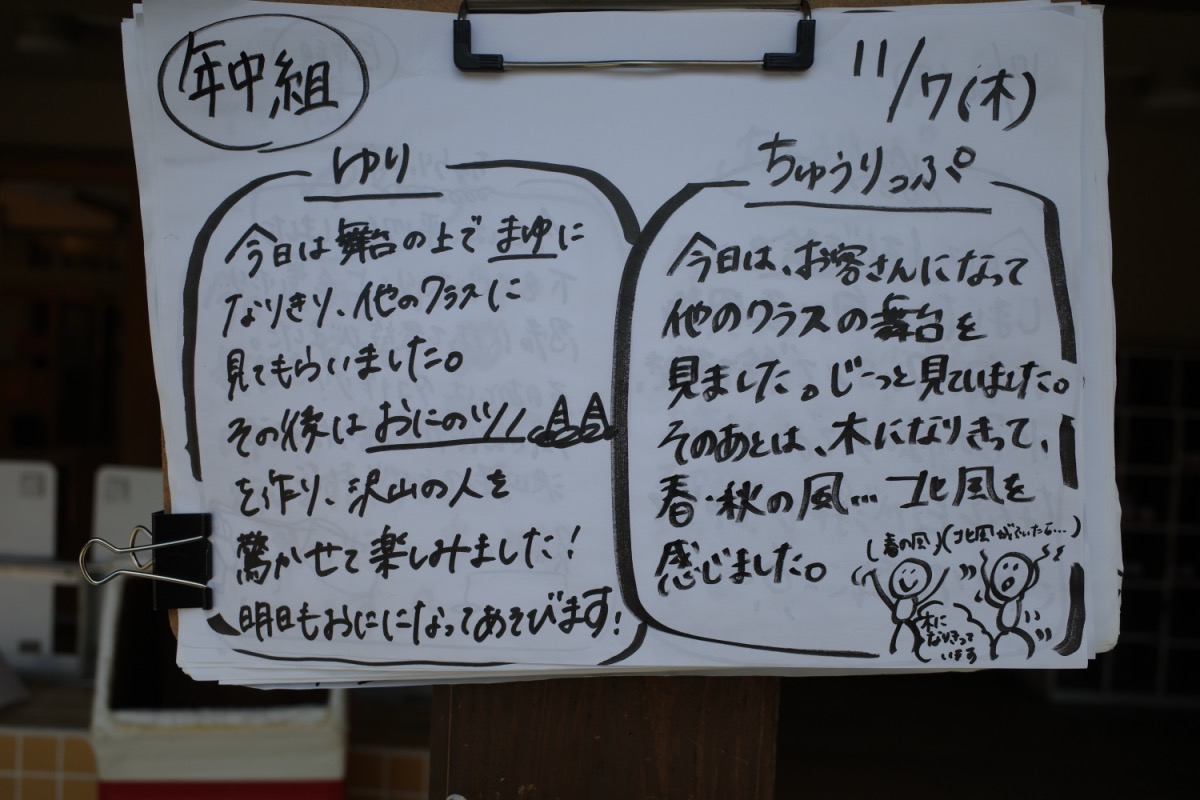 年中組
11/7(木)
ゆり
今日は舞台の上でまゆに
なりきり、他のクラスに
見てもらいました。
その後はおにのツノ
を作り、沢山の人を
驚かせて楽しみました!
明日もおにになってあそびます!
ちゅうりっぷ
今日は、お客さんになって
他のクラスの舞台を
見ました。じーっと見ていました。
そのあとは、木になりきって、
春・秋の風…北風を
感じました。
(春の風)
(北風がふいたら…)
木に
なりきって
います